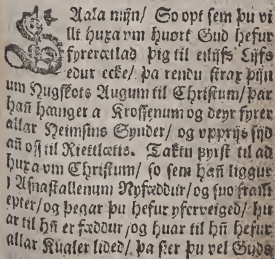 SAala mijn/ So opt sem þu vi
llt huxa vm huort Gud hefur
fyrerætlad þig til eilijfs Lijfs
edur ecke/ þa rendu strax þijn
um Hugskots Augum til Christum/ þar
hañ hænger a Krossenum og deyr fyrer
allar Heimsins Synder/ og vpprijs sijd
añ oss til Riettlætis. Taktu þyrst til ad
huxa vm Christum/ so sem hañ liggur
j Asnastallenum Nyfæddur/ og suo framm
epter/ og þegar þu hefur yferveiged/ hu
ar til hñ er fæddur/ og huar til hñ hefur
allar Kuøler lided/ þa sier þu vel Guds